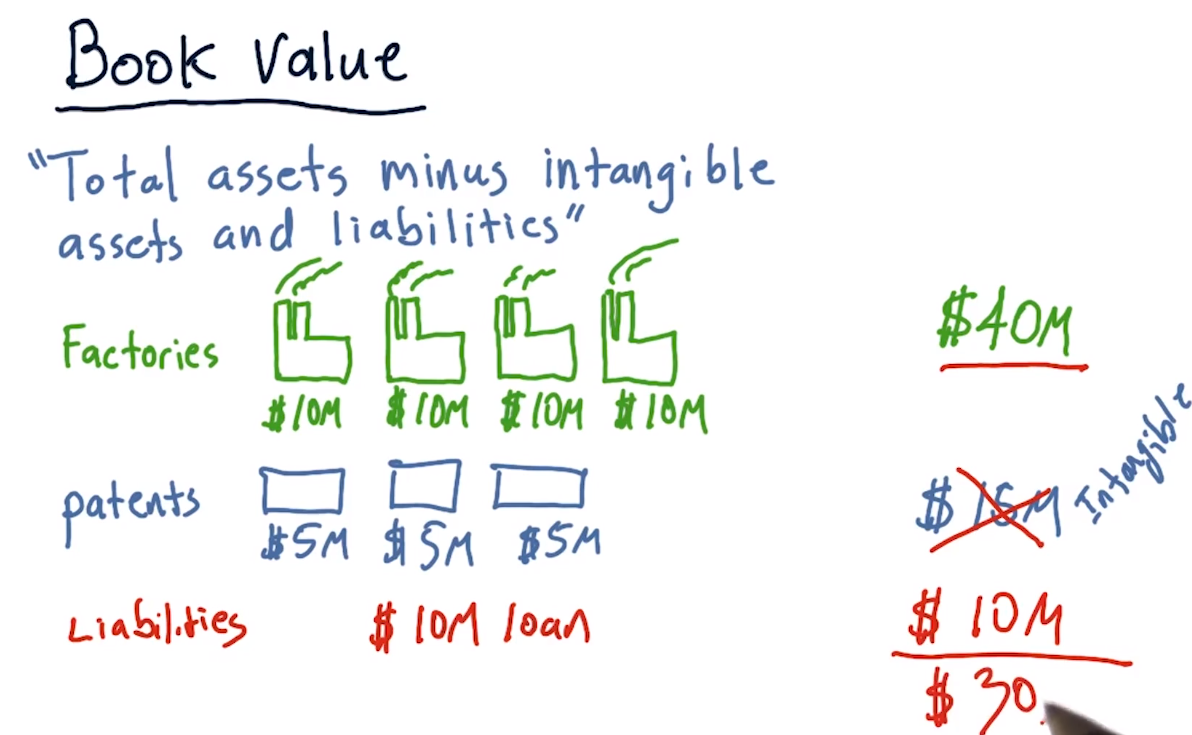 Book Value
"Total assets minus intangible
assets and liabilities"
Factories
$10M $10M $10M $10M
$40M
patents
$5M $5M $5M
$15M Intangible
Liabilities $10M loan
$10M
$30